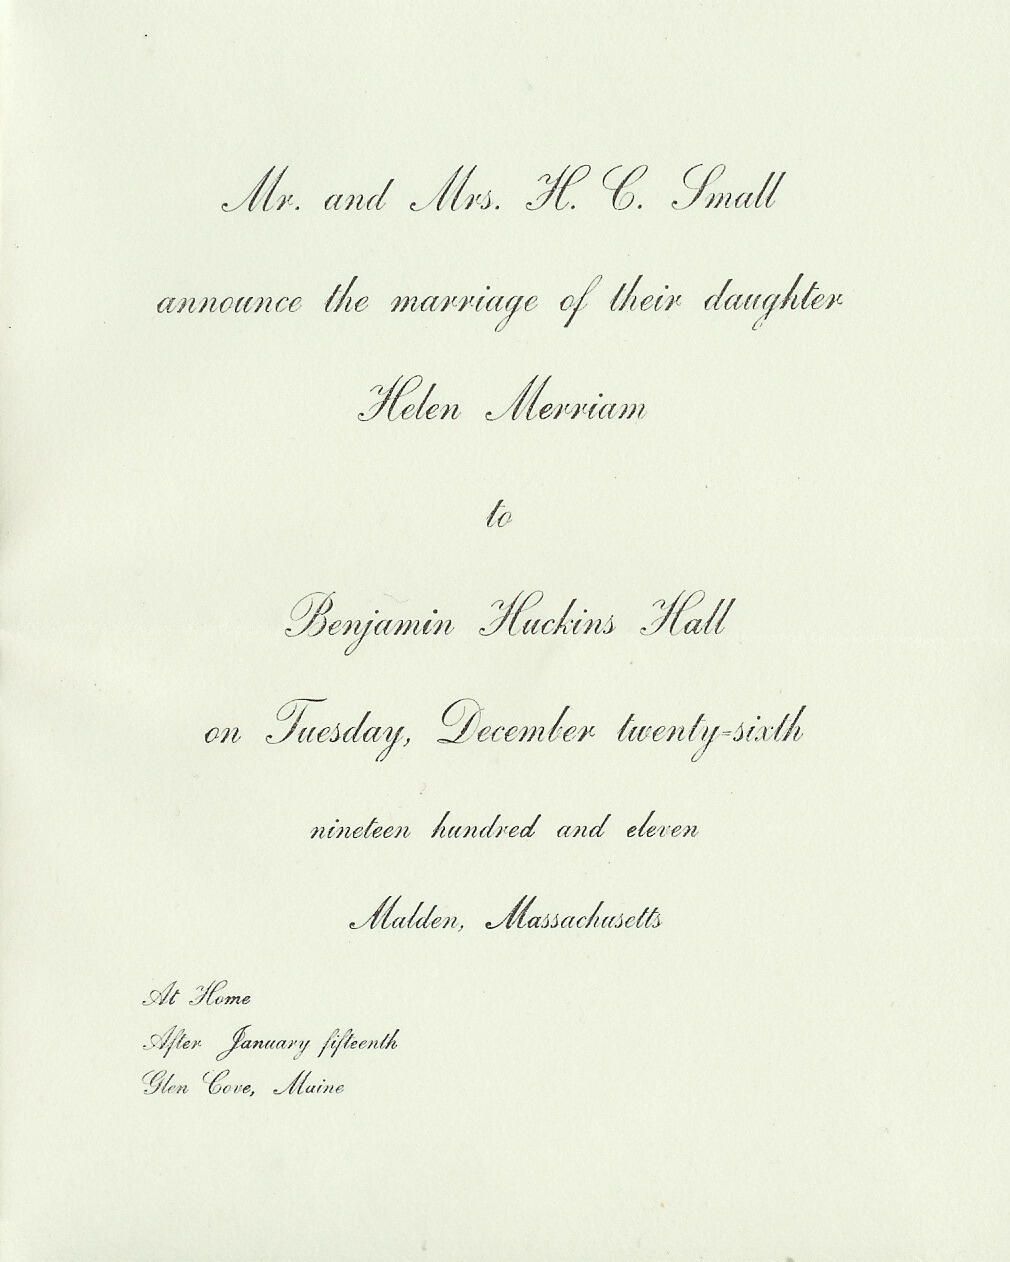 Mr. and Mrs. H. C. Small
announce the marriage of their daughter
Helen Merriam
to
Benjamin Huckins Hall
on Tuesday, December twenty-sixth
nineteen hundred and eleven
Malden, Massachusetts
At Home
After January fifteenth
Glen Cove, Maine